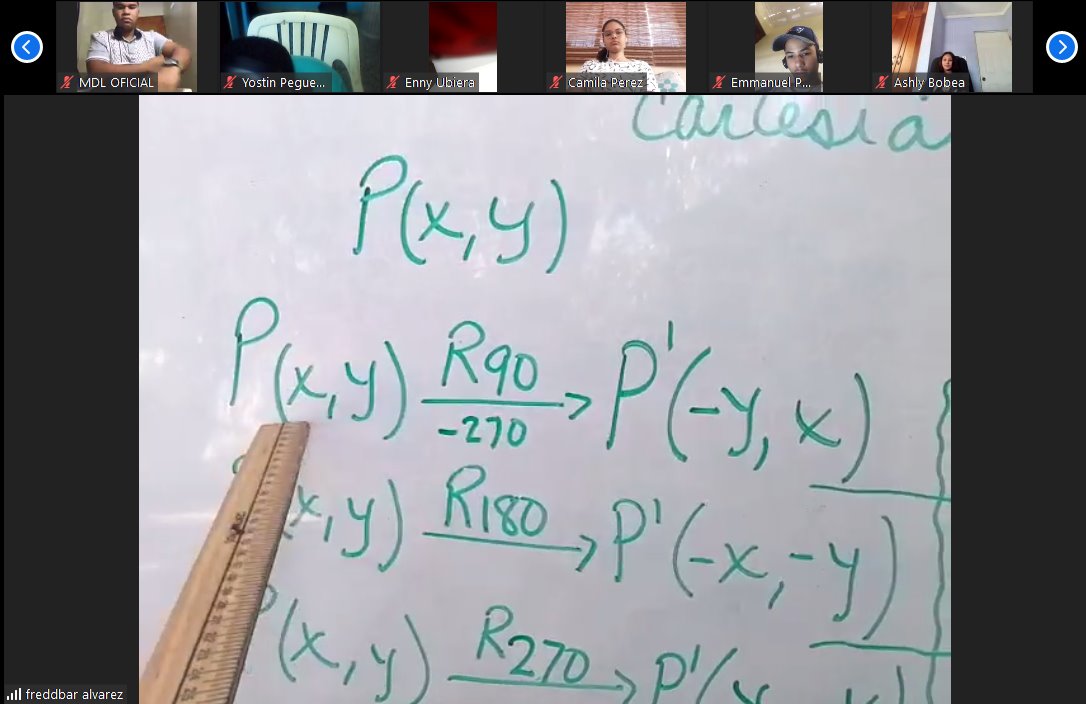 MDL OFICIAL
Yostin Pegue...
Enny Ubiera
Camila Perez
Emmanuel P...
Ashly Bobea
P(x,y)
P(x,y) R90 -270 → P'(-y, x)
(x,y) R180 → P'(-x,-y)
P(x,y) R270 → P'(
freddbar alvarez